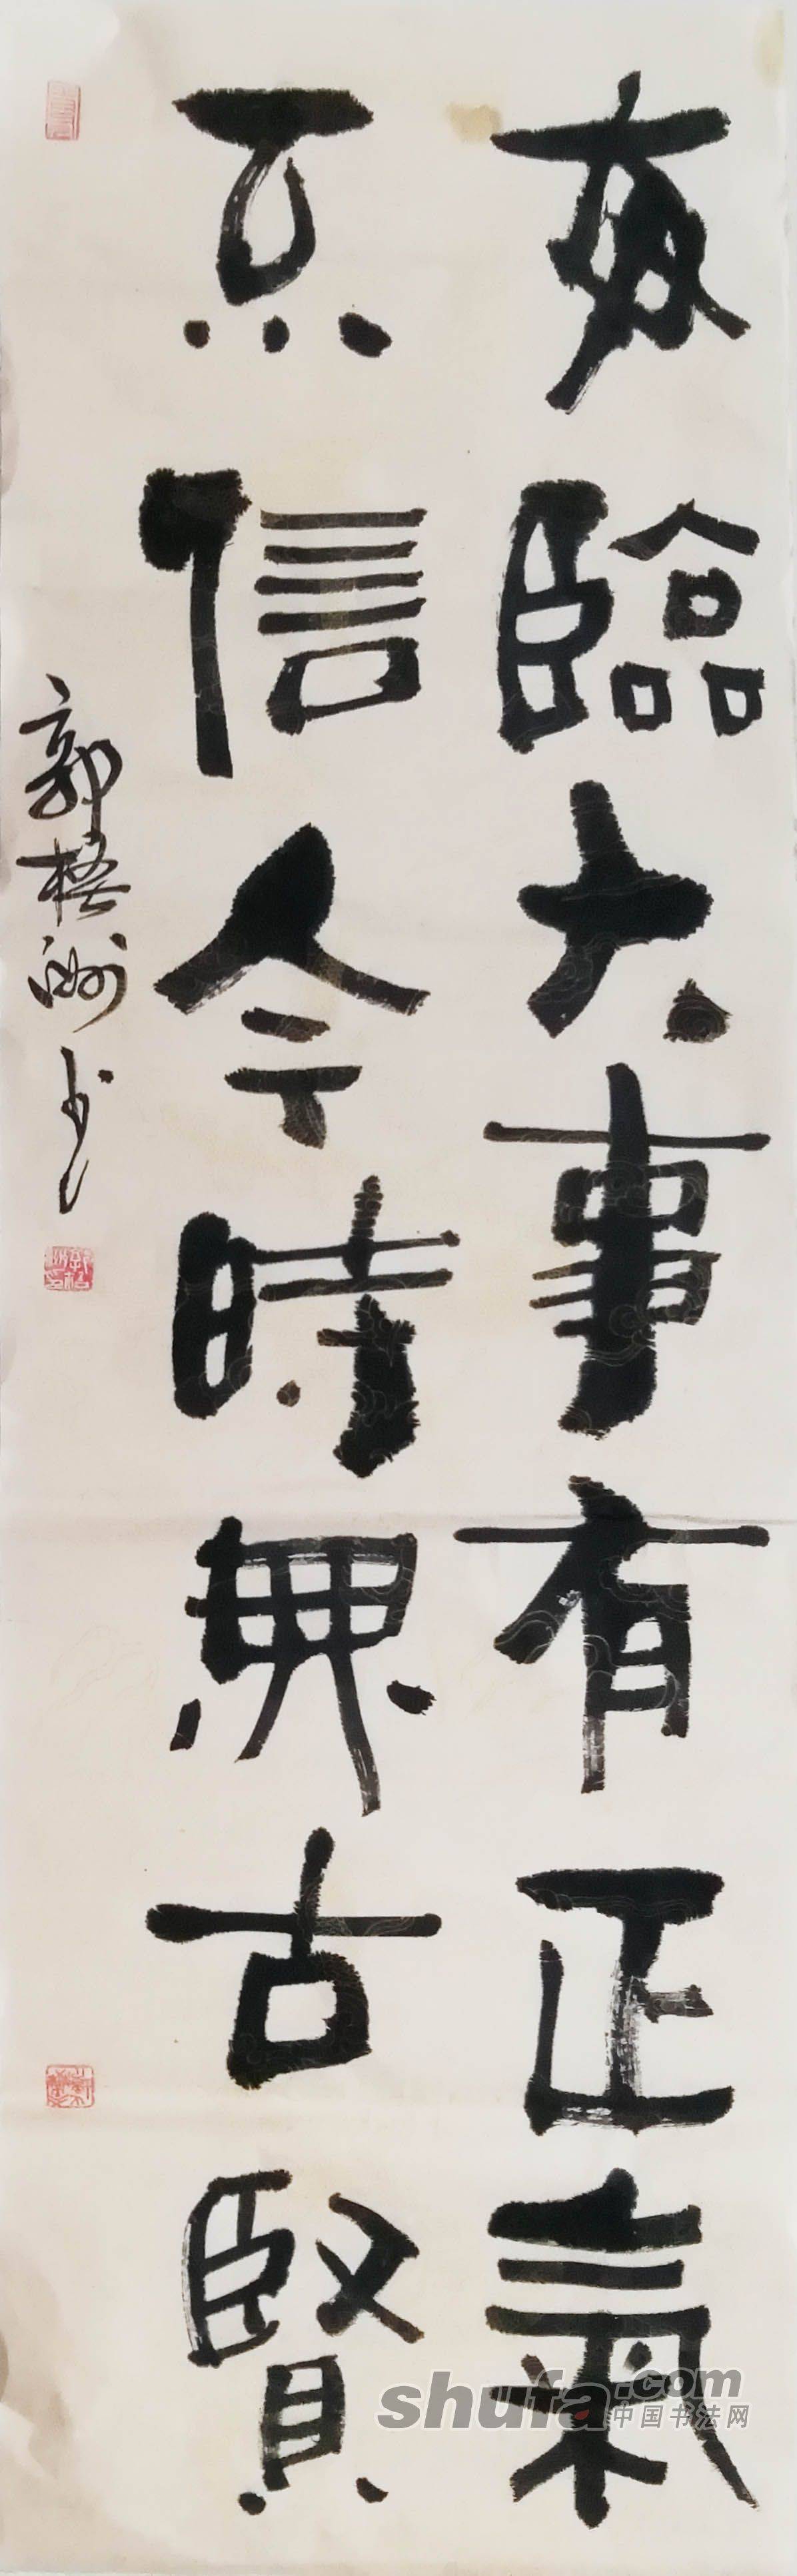 每臨大事有正氣
不信今時無古賢
郭梧洲书
shufa.com
中国书法网